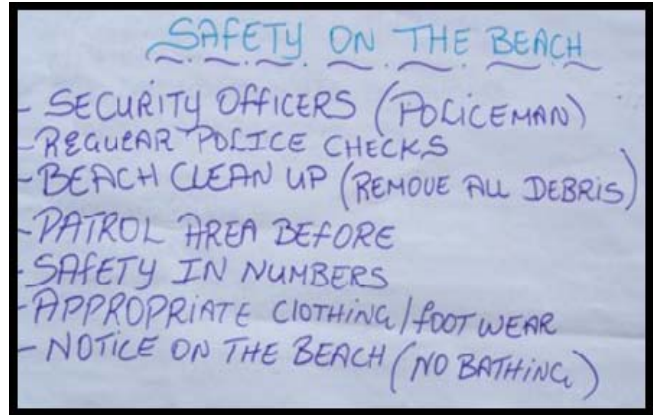 SAFETY ON THE BEACH
- SECURITY OFFICERS (POLICEMAN)
- REGULAR POLICE CHECKS
- BEACH CLEAN UP (REMOVE ALL DEBRIS)
- PATROL AREA BEFORE
- SAFETY IN NUMBERS
- APPROPRIATE CLOTHING/FOOTWEAR
- NOTICE ON THE BEACH (NO BATHING)